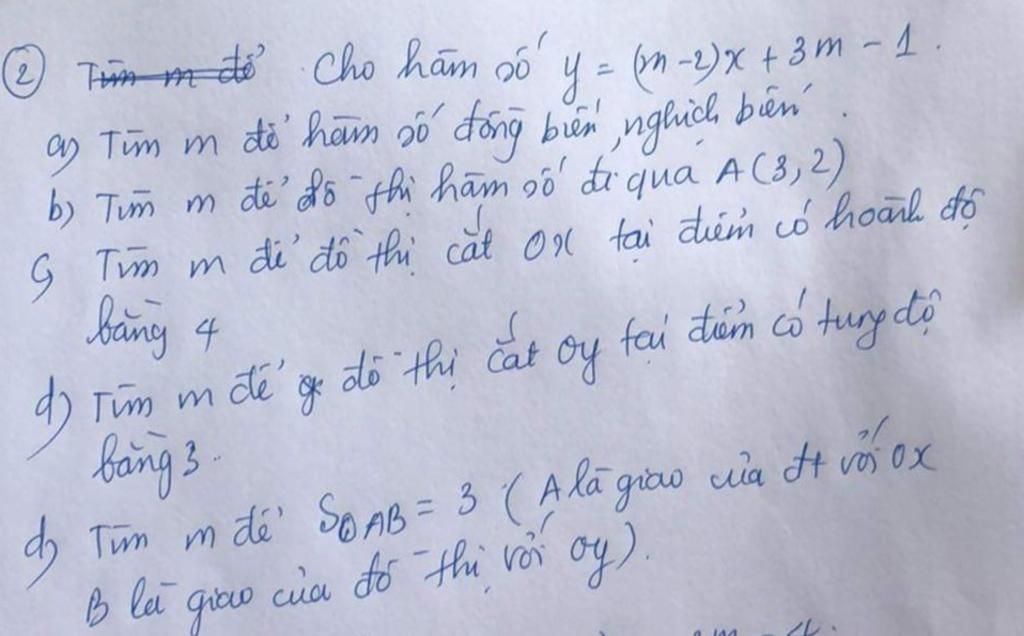 ② Tìm m để Cho hàm số y = (m-2)x + 3m - 1.
a) Tìm m để hàm số đồng biến, nghịch biến.
b) Tìm m để đồ thị hàm số đi qua A(3,2)
c) Tìm m để đồ thị cắt Ox tại điểm có hoành độ
bằng 4
d) Tìm m để đồ thị cắt Oy tại điểm có tung độ
bằng 3.
đ) Tìm m để SOAB = 3 (A là giao của đt với Ox
B là giao của đồ thị với Oy).